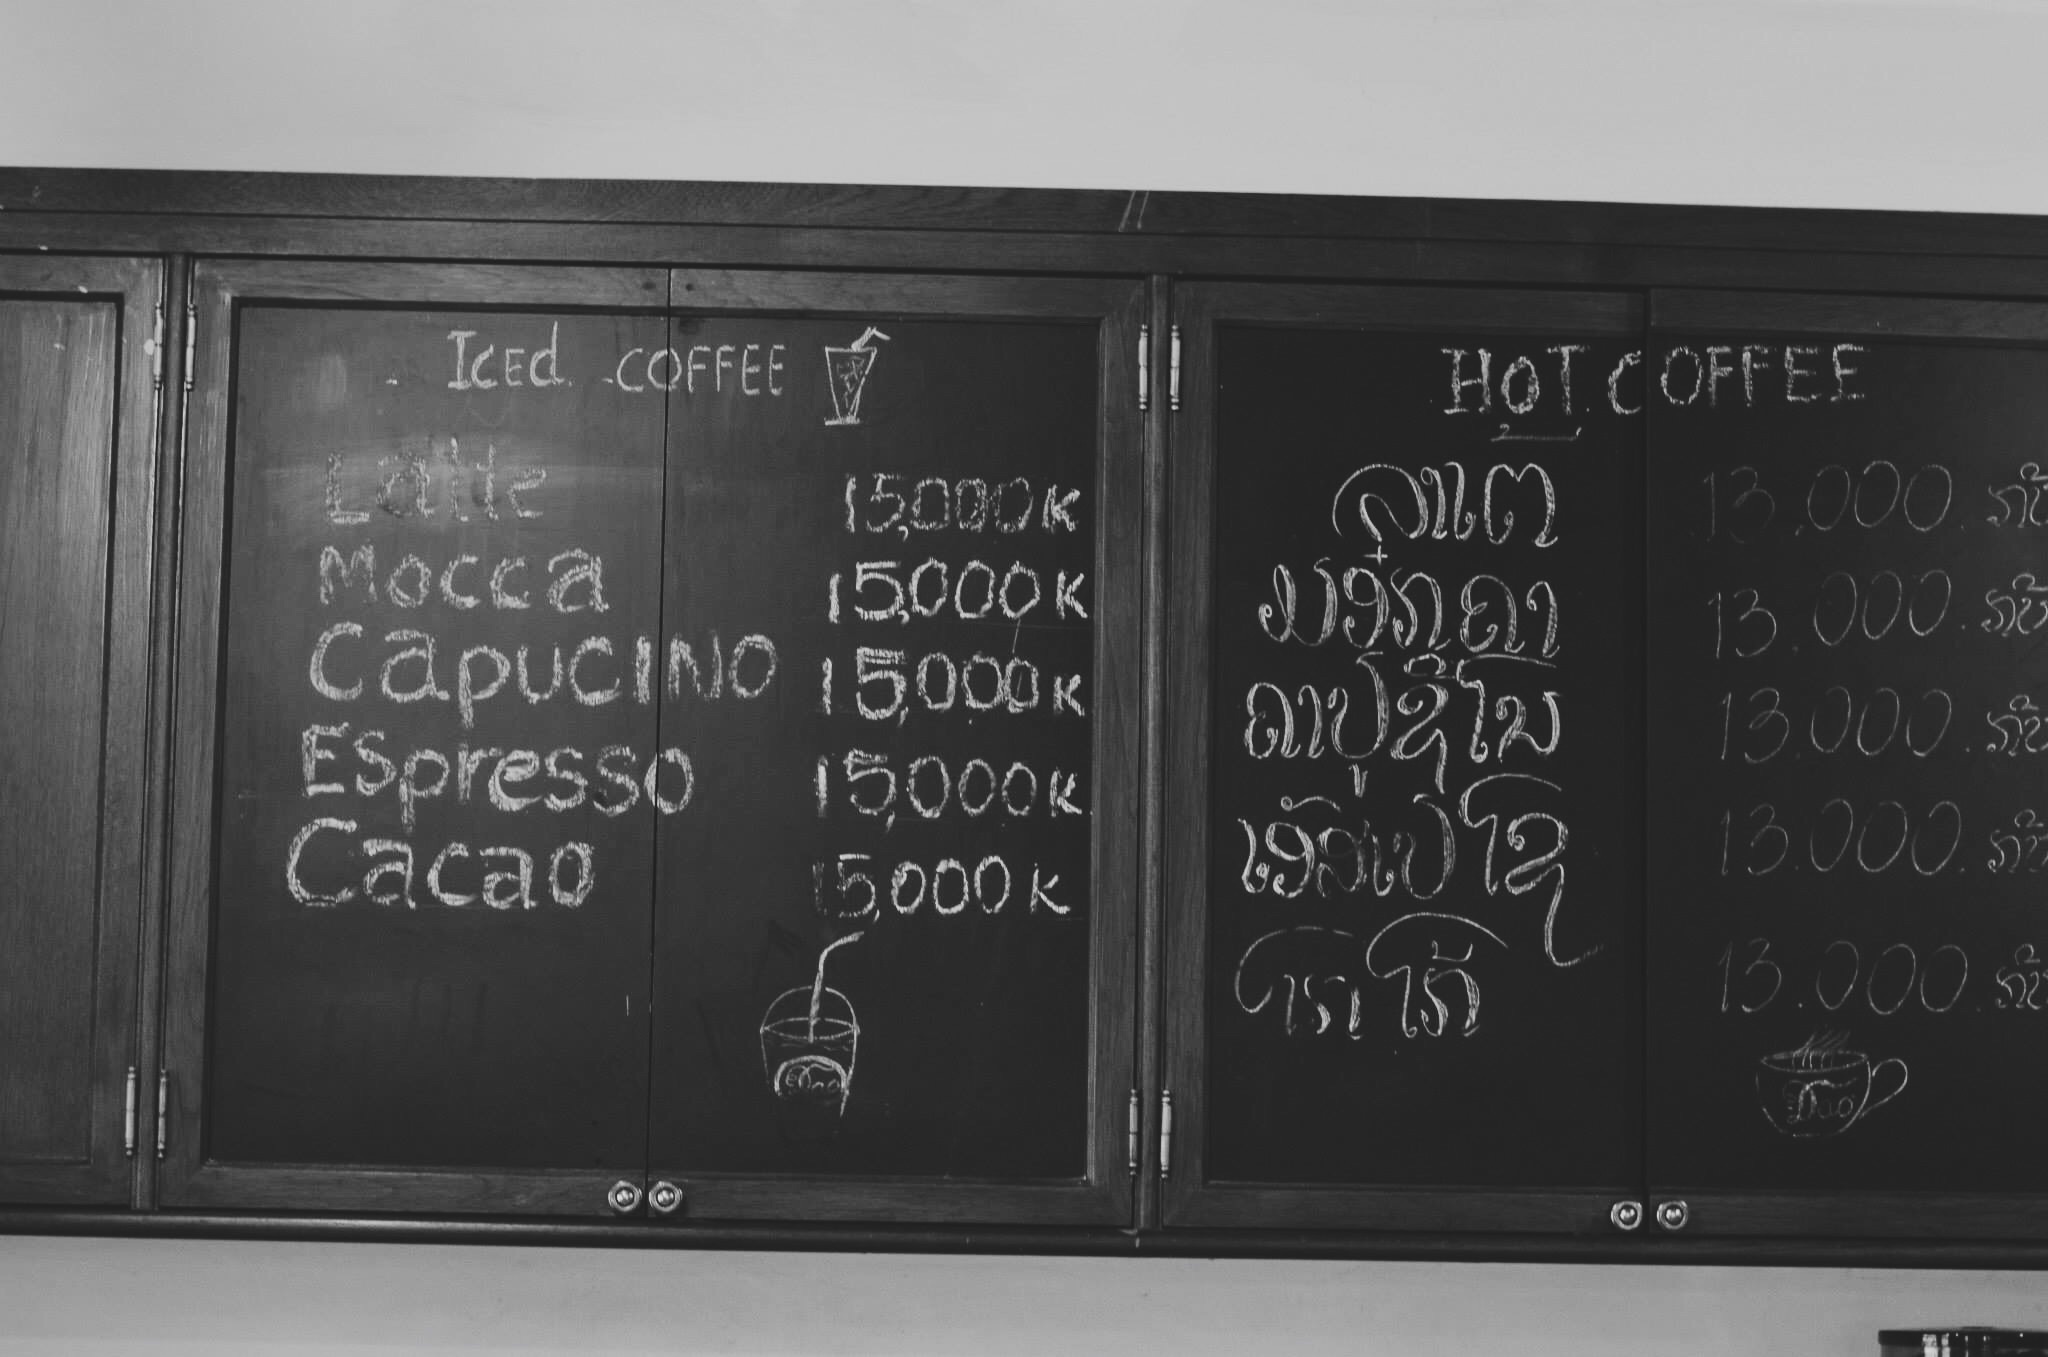 Iced COFFEE
Latte 15,000K
Mocca 15,000K
Capucino 15,000K
Espresso 15,000K
Cacao 15,000K
HOT COFFEE
ລາເຕ 13.000
ມອັກຄາ 13.000
ຄາປູຊິໂນ 13.000
ເອັສເປໂຊ 13.000
ໂກໂກ້ 13.000